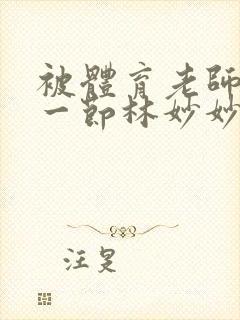 被體育老師
一節林妙妙
汪旻